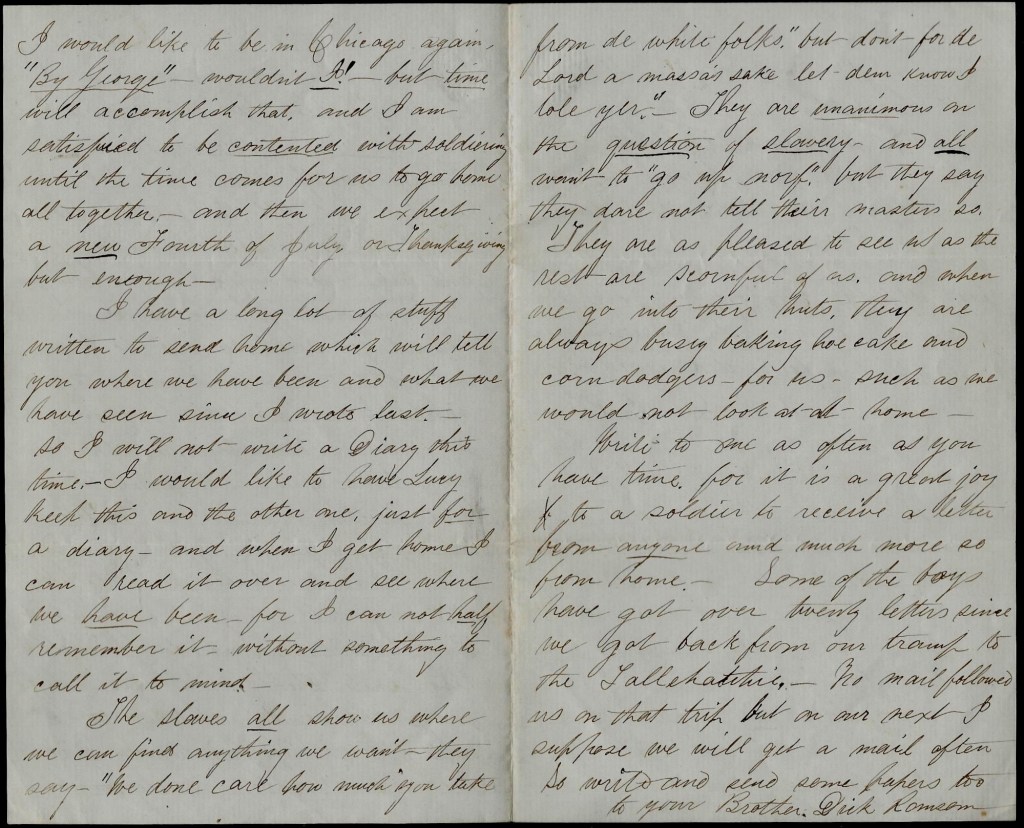 I would like to be in Chicago again,
"By George" – wouldn't I! – but time
will accomplish that, and I am
satisfied to be contented with soldiering
until the time comes for us to go home
all together, – and then we expect
a new Fourth of July or Thanksgiving
but enough –
I have a long lot of stuff
written to send home which will tell
you where we have been and what we
have seen since I wrote last. –
so I will not write a Diary this
time. – I would like to have Lucy
keep this and the other one, just for
a diary – and when I get home I
can read it over and see where
we have been – for I can not half
remember it – without something to
call it to mind –
The slaves all show us where
we can find anything we want – they
say – "We done care how much you take
from de white folks." but dont for de
Lord a massa's sake let dem know I
tole yer." – They are unanimous on
the question of slavery – and all
want to "go up norf." but they say
they dare not tell their masters so.
They are as pleased to see us as the
rest are scornful of us, and when
we go into their huts, they are
always busy baking hoe cake and
corn dodgers – for us – such as we
would not look at at home –
Write to me as often as you
have time, for it is a great joy
to a soldier to receive a letter
from anyone and much more so
from home. – Some of the boys
have got over twenty letters since
we got back from our tramp to
the Tallehatchie, – No mail followed
us on that trip but on our next I
suppose we will get a mail often
So write and send some papers too
to your Brother. Dick Ransom